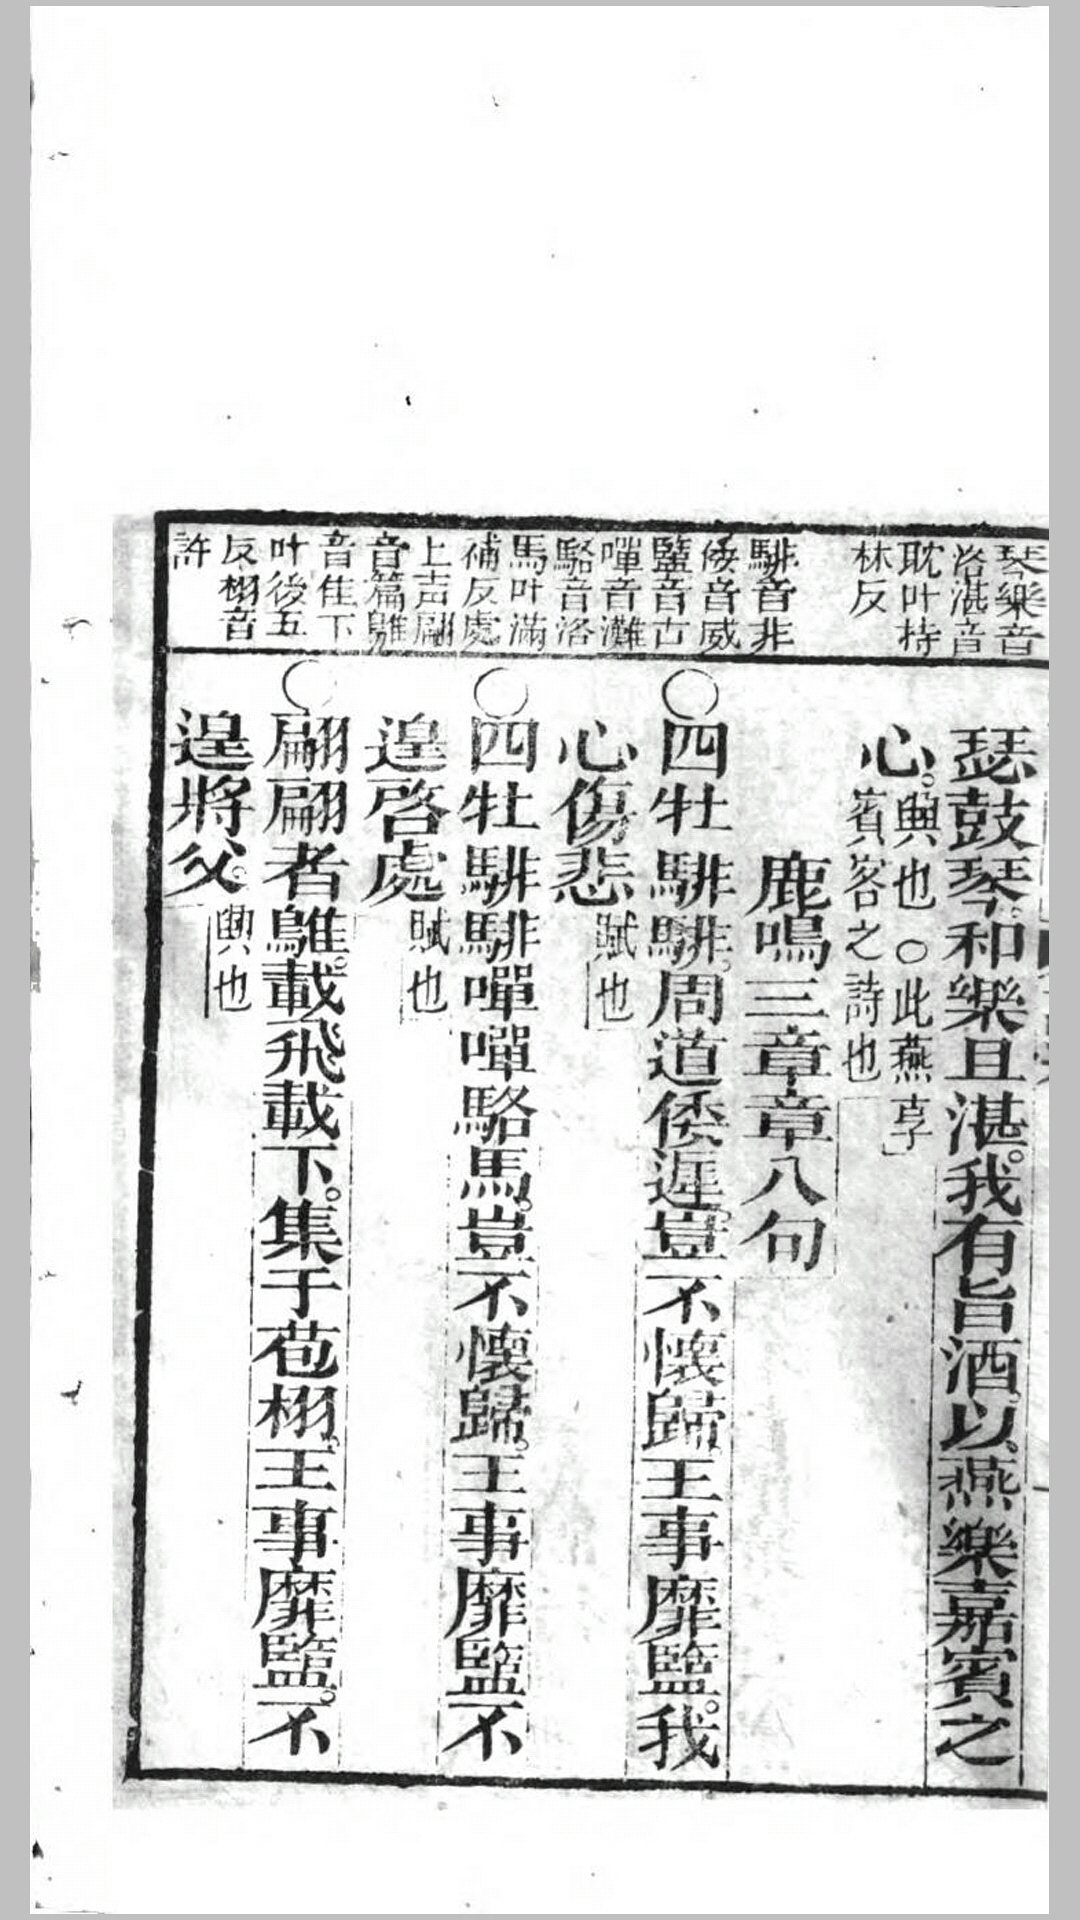 琴樂音
洛湛音
耽叶持
林反
騑音非
倭音威
盬音古
嘽音灘
駱音洛
馬叶滿
補反處
上声翩
音篇鵻
音隹下
叶後五
反栩音
許
瑟鼓琴。和樂且湛。我有旨酒。以燕樂嘉賓之
心。興也○此燕享
賓客之詩也
鹿鳴三章章八句
○四牡騑騑。周道倭遲。豈不懷歸。王事靡盬。我
心傷悲賦也
○四牡騑騑嘽嘽駱馬。豈不懷歸。王事靡盬不
遑啓處賦也
○翩翩者鵻。載飛載下。集于苞栩。王事靡盬。不
遑將父。興也